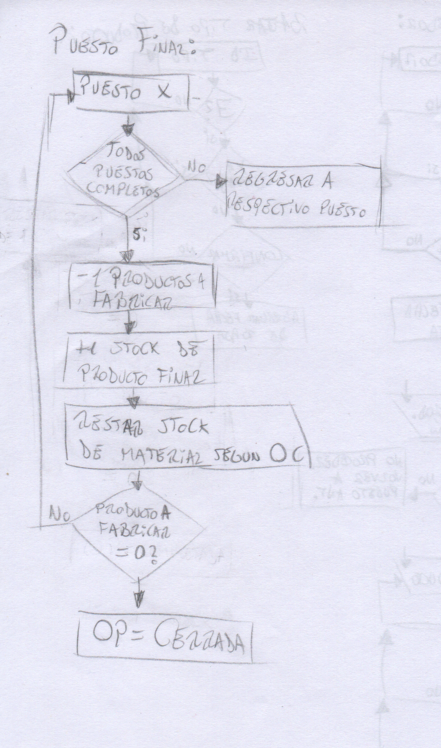 PUESTO FINAL:
PUESTO X
TODOS
PUESTOS
COMPLETOS
No
REGRESAR A
RESPECTIVO PUESTO
Si
-1 PRODUCTOS A
FABRICAR
+1 STOCK DE
PRODUCTO FINAL
RESTAR STOCK
DE MATERIAL SEGUN OC
No
PRODUCTO A
FABRICAR
=0?
OP= CERRADA